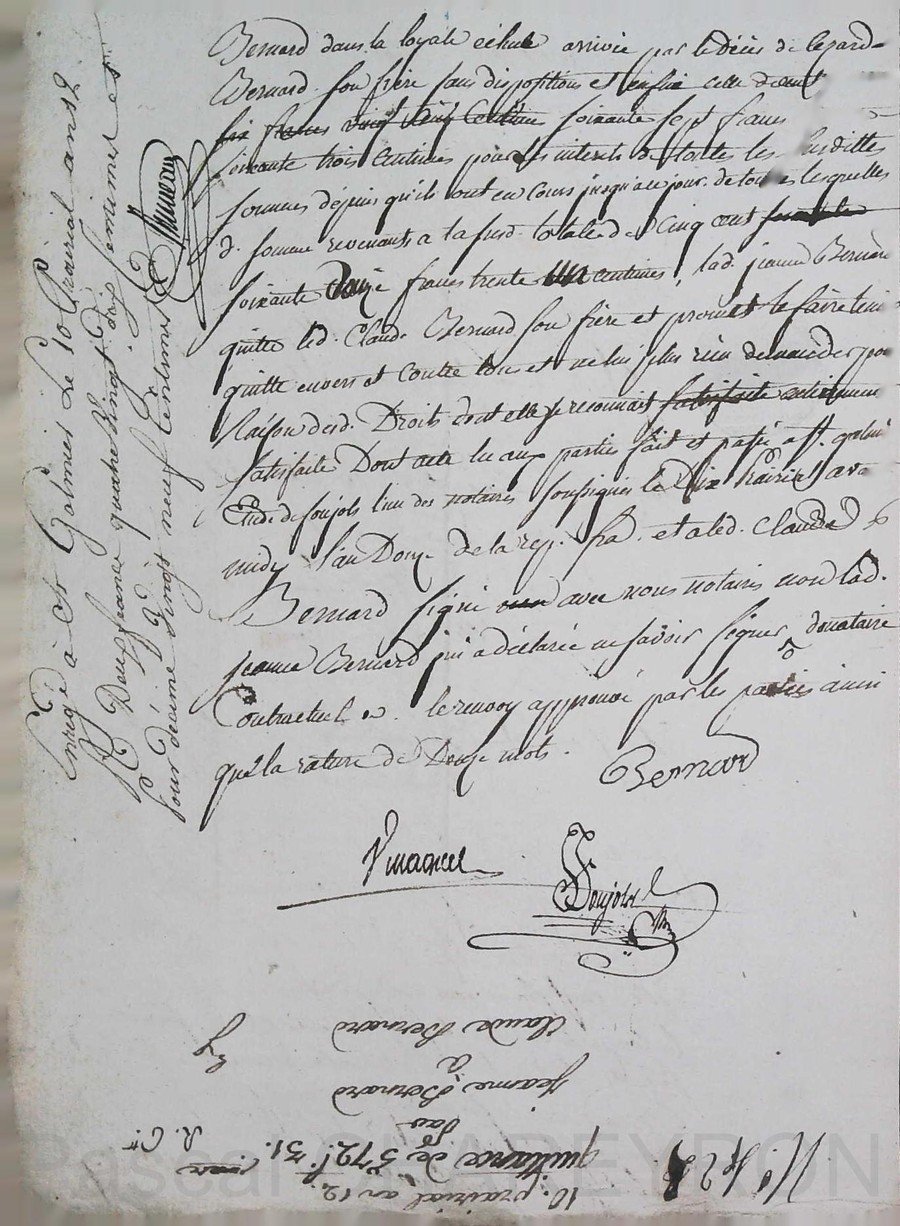 Bernard dans la loyale échute arrivée par le décès de Legard
Bernard son frère sans dispositions et enfin celle de
six francs vingt neuf centimes soixante sept francs
soixante trois centimes pour les interets de toutes les susdittes
sommes depuis qu'ils ont eu cours jusqu'au jour. de toutes lesquelles
d. somme revenants a la susd. totale de cinq cent
soixante Douze francs trente un centimes, lad. jeanne Bernard
quitte led. Claude Bernard son frère et promet le faire tenir
quitte envers et contre tous et ne lui plus rien demander pour
Raison desd. Droits dont elle se reconnait satisfaite entierement
satisfaite Dont acte lu aux parties fait et passé a St. galmier
Etude de foujols l'un des notaires soussignés le Dix Prairial avant
midy l'an Douze de la rep. fra. et a led. Claude
Bernard signé avec nous notaires non lad.
jeanne Bernard qui a déclarée ne savoir signer donataire
Contractuel le renvoy approuvé par les parties ainsi
que la rature de Douze mots.
Bernard
Foujols
Enregé à St Galmier Le 10 Prairial an 12
R Deux francs quatre Vingt dix centimes et
pour décime Vingt neuf Centimes
N. 428
10. prairial an 12,
quittance de 572f. 31c
R. Ctte
par
Jeanne Bernard
à
Claude Bernard
Pascal CHAREYRON